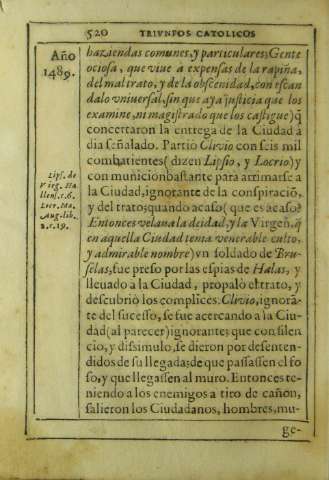 520 TRIVNFOS CATOLICOS
Año
1489.
haziendas comunes, y particulares; Gente
ociosa, que viue a expensas de la rapiña,
del mal trato, y de la obscenidad, con escan
dalo vniuersal, sin que aya justicia que los
examine, ni magistrado que los castigue) q̃
concertaron la entrega de la Ciudad à
dia señalado. Partiò Clivio con seis mil
combatientes (dizen Lipsio, y Locrio) y
con municion bastante para arrimarse a
la Ciudad, ignorante de la conspiraciõ,
y del trato; quando acaso (que es acaso?
Entonces velaua la deidad, y la Virgen, q̃
en aquella Ciudad tenia venerable culto,
y admirable nombre) vn soldado de Bru-
selas, fue preso por las espias de Halas, y
lleuado à la Ciudad, propalò el trato, y
descubriò los complices. Clivio, ignorã-
te del sucesso, se fue acercando a la Ciu-
dad (al parecer) ignorante; que con silen
cio, y dissimulo, se dieron por desenten-
didos de su llegada; de que passassen el fo
so, y que llegassen al muro. Entonces te-
niendo a los enemigos a tiro de cañon,
salieron los Ciudadanos, hombres, mu-
ge-
Lips. de
Virg. Ha
llens. c. 6.
Locr. Ma.
Aug. lib.
2. c. 19.